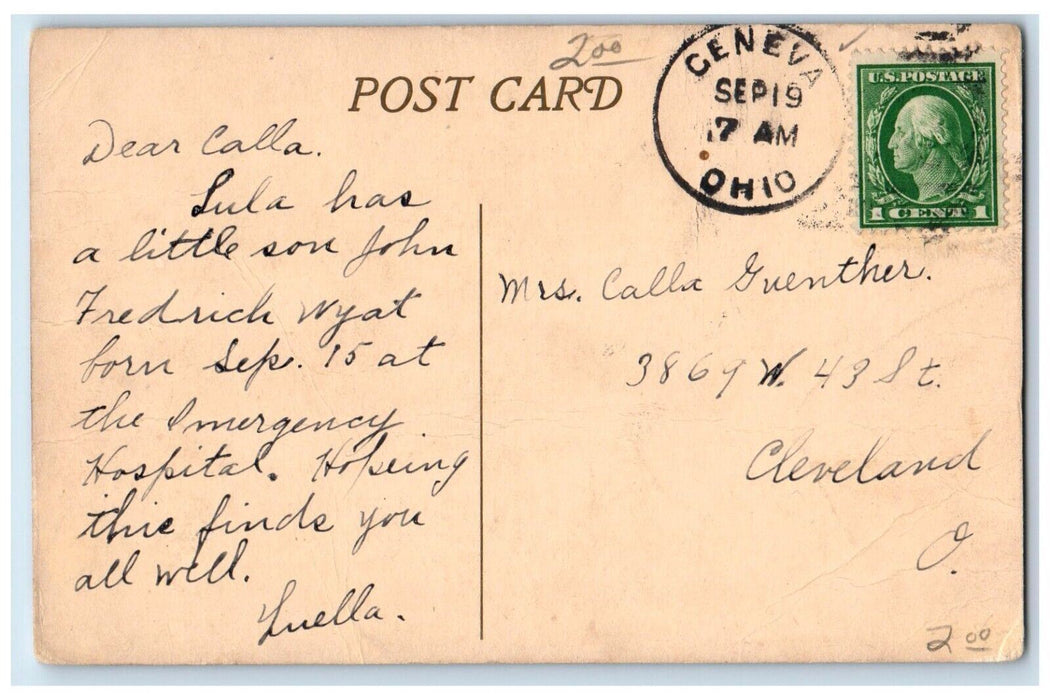 2.00
POST CARD
GENEVA
SEP 19
7 AM
OHIO
U.S. POSTAGE
1 CENT 1
Dear Calla.
Lula has
a little son John
Fredrich Wyat
born Sep. 15 at
the Emergency
Hospital. Hopeing
this finds you
all well.
Luella.
Mrs. Calla Guenther.
3869 W. 43 St.
Cleveland
O.
2.00